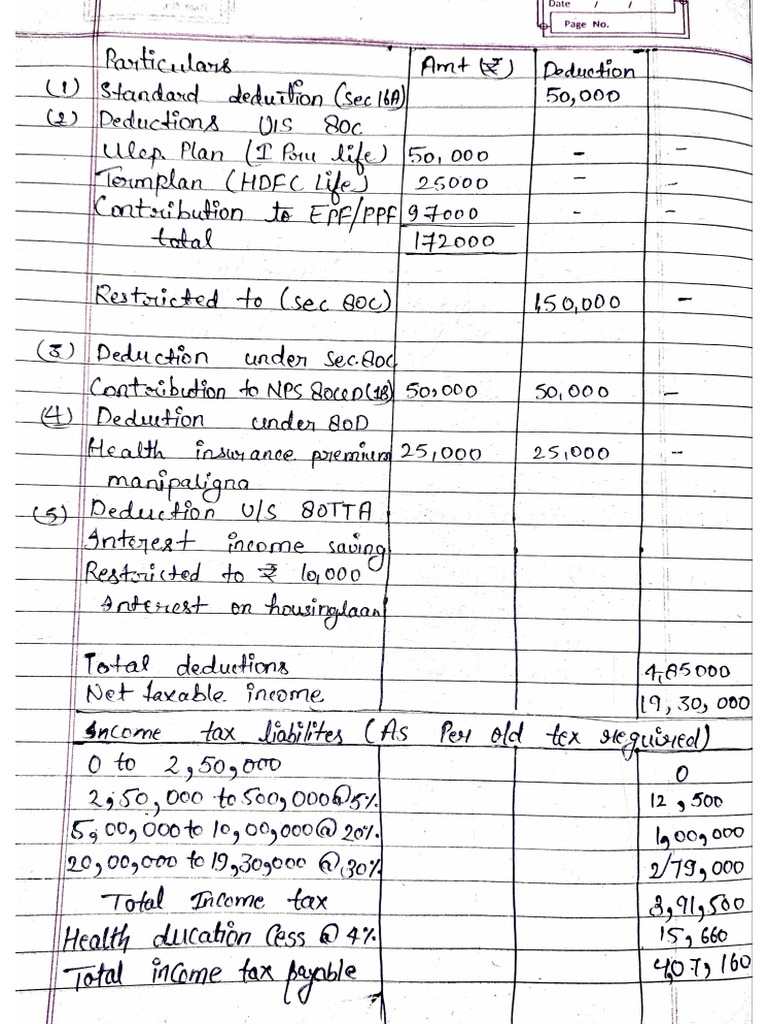 Date / /
Page No.
Particulars Amt (₹) Deduction
(1) Standard deduition (Sec 16A) 50,000
(2) Deductions U/S 80C
Ulep. Plan (I Pru life) 50,000 - -
Termplan (HDFC Life) 25000 - -
Contribution to EPF/PPF 97000 - -
total 172000
Restricted to (sec 80C) 1,50,000 -
(3) Deduction under Sec.80C
Contribution to NPS 80CCD(1B) 50,000 50,000 -
(4) Dedution under 80D
Health insurance premium 25,000 25,000 -
manipaligna
(5) Deduction U/S 80TTA
Interest income saving
Restricted to ₹ 10,000
Interest on housinglaan
Total deductions 4,85000
Net taxable income 19,30,000
Income tax liabilites (As Per old tex required)
0 to 2,50,000 0
2,50,000 to 500,000@5% 12,500
5,00,000 to 10,00,000@20% 1,00,000
20,00,000 to 19,30,000 @30% 2/79,000
Total Income tax 3,91,500
Health ducation Cess @ 4% 15,660
Total income tax payable 4,07,160